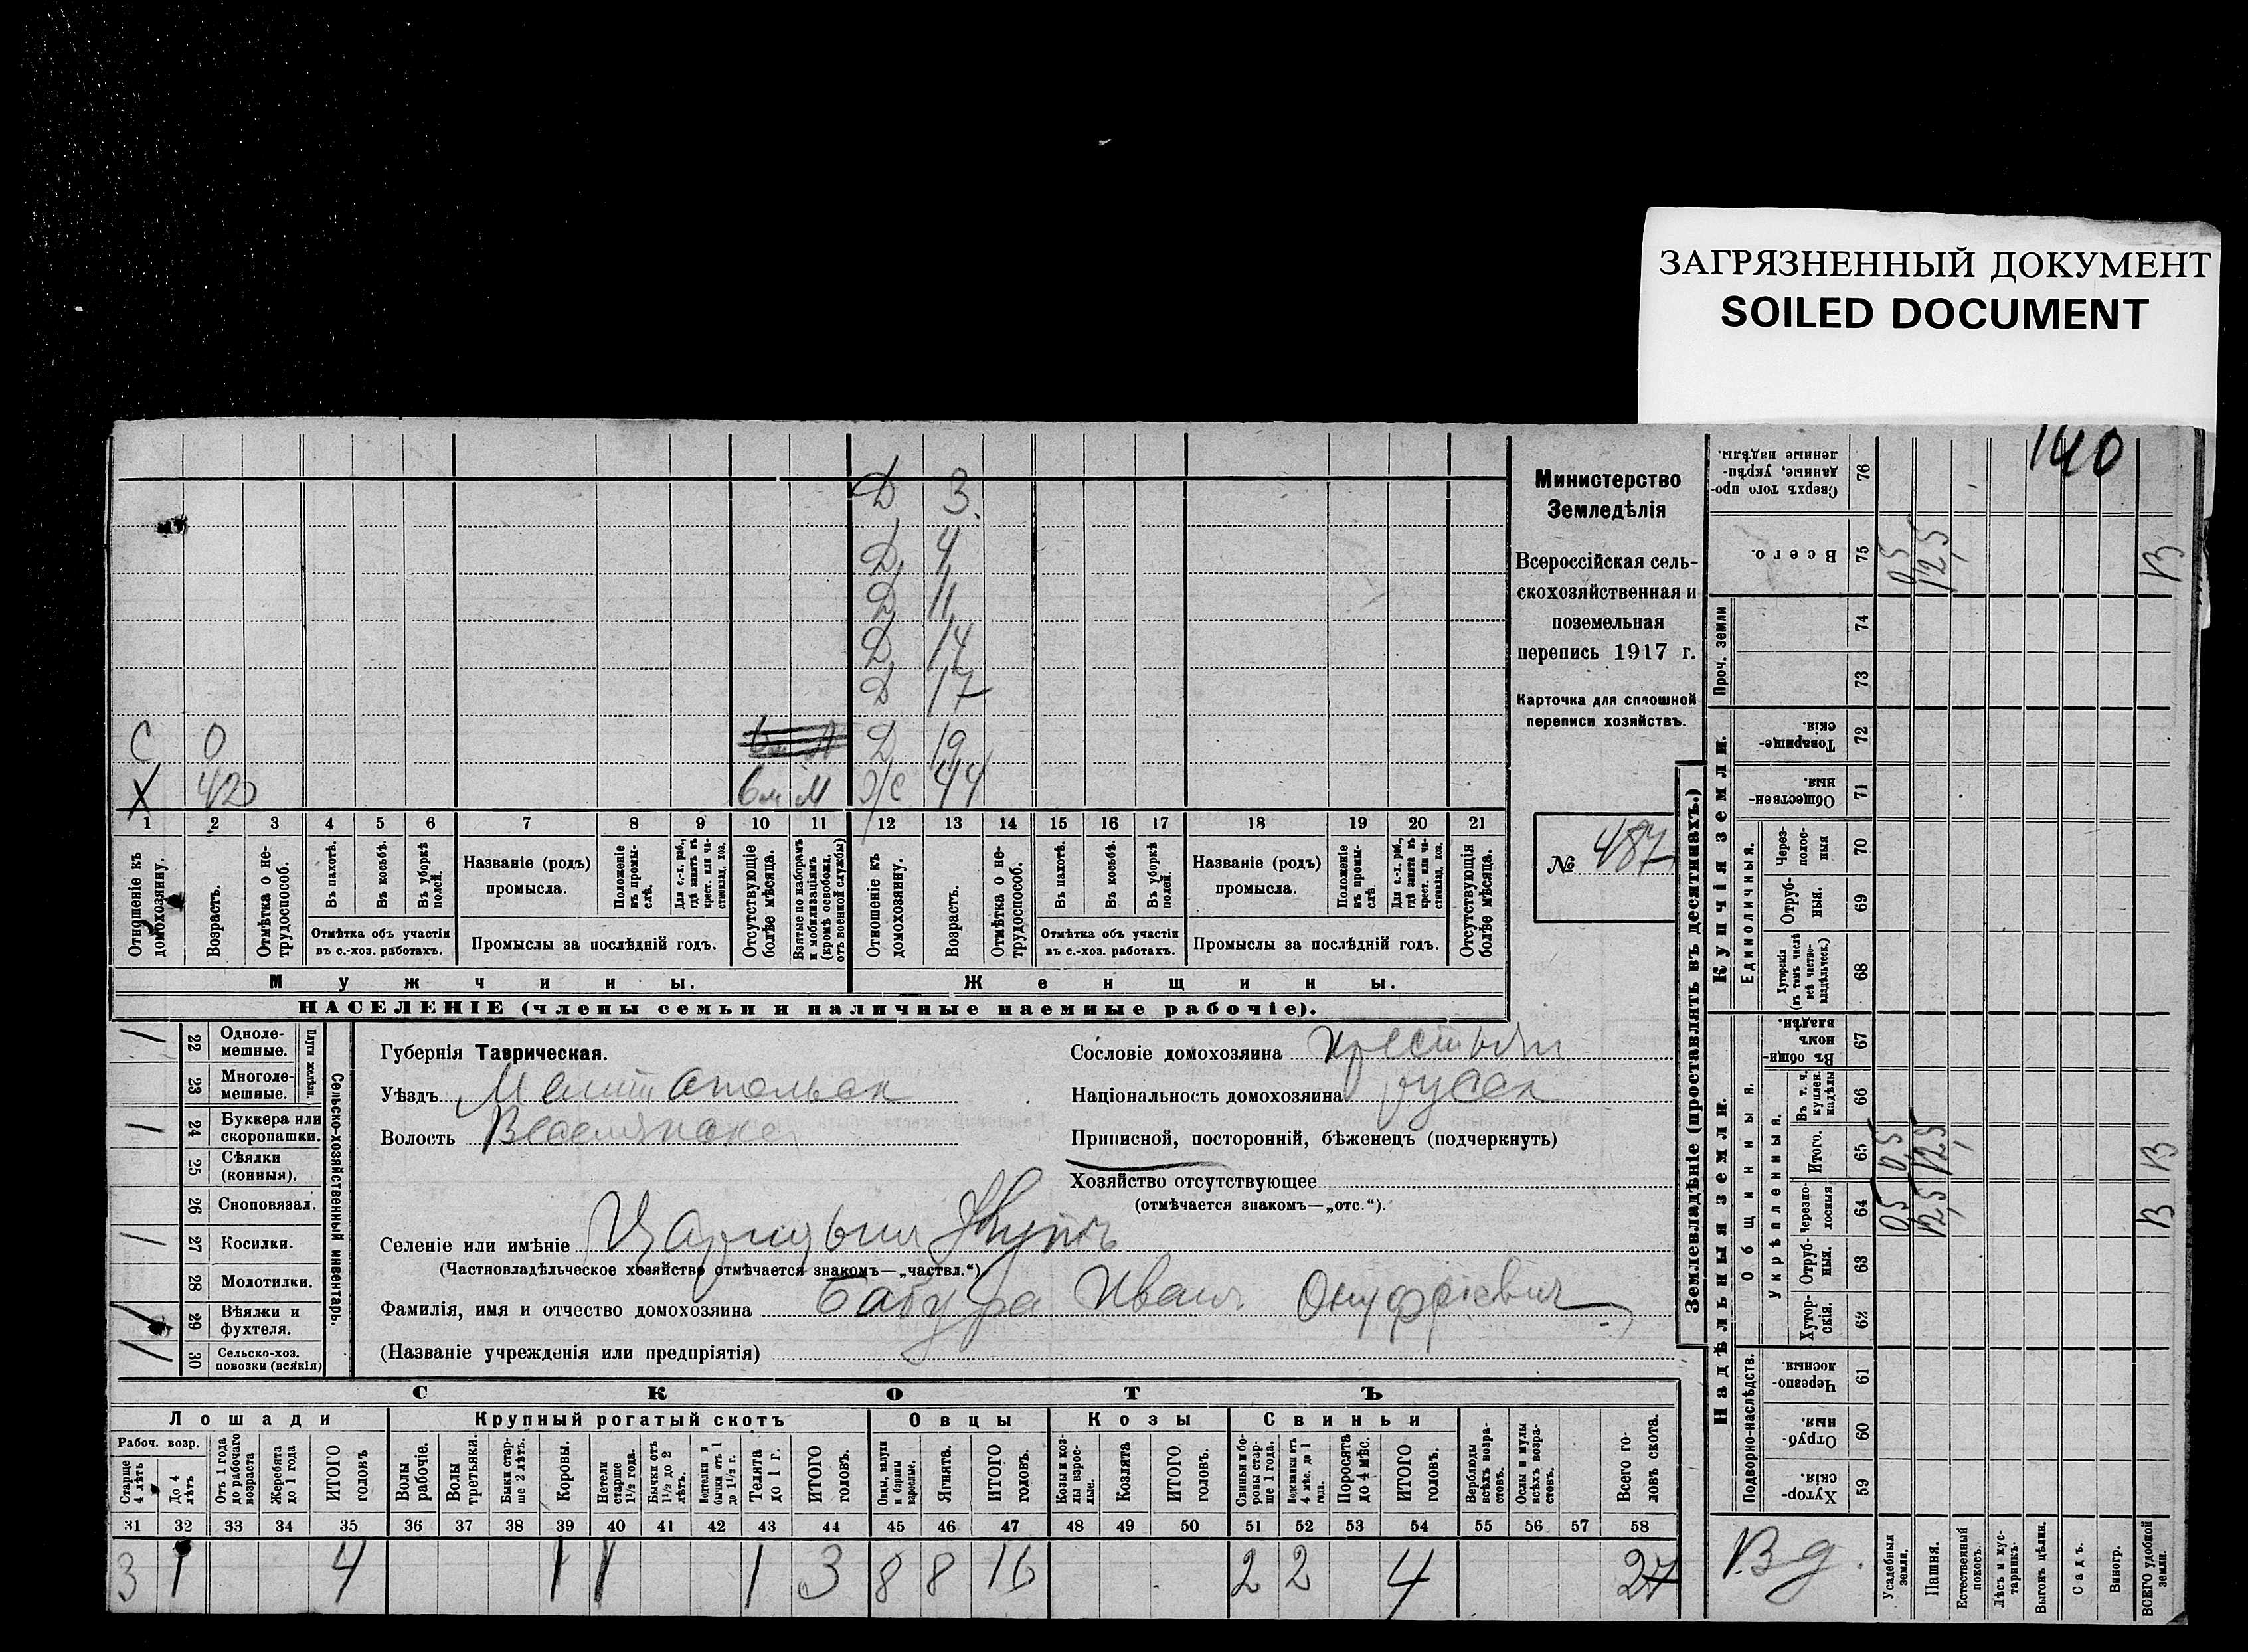 ЗАГРЯЗНЕННЫЙ ДОКУМЕНТ
SOILED DOCUMENT
140
Д 3
Д 4
Д 11
Д 14
Д 17
С 0 Д 19
Х 42 6м М Ж 44
1 2 3 4 5 6 7 8 9 10 11 12 13 14 15 16 17 18 19 20 21
Отношеніе къ домохозяину.
Возрастъ.
Отмѣтка о нетрудоспособ.
Въ пахотѣ.
Въ косьбѣ.
Въ уборкѣ полей.
Отмѣтка объ участіи
въ с.-хоз. работахъ.
Названіе (родъ)
промысла.
Положеніе въ промыслѣ.
Для с.-х. раб., гдѣ занятъ въ крест. или частновлад. хоз.
Промыслы за послѣдній годъ.
Отсутствующіе болѣе мѣсяца.
Взятые по наборамъ и мобилизаціямъ (кромѣ освобожд. отъ военной службы)
Отношеніе къ домохозяину.
Возрастъ.
Отмѣтка о нетрудоспособ.
Въ пахотѣ.
Въ косьбѣ.
Въ уборкѣ полей.
Отмѣтка объ участіи
въ с.-хоз. работахъ.
Названіе (родъ)
промысла.
Положеніе въ промыслѣ.
Для с.-х. раб., гдѣ занята въ крест. или частновлад. хоз.
Промыслы за послѣдній годъ.
Отсутствующія болѣе мѣсяца.
Мужчины. Женщины.
НАСЕЛЕНІЕ (члены семьи и наличные наемные рабочіе).
Министерство
Земледѣлія
Всероссійская сель-
скохозяйственная и
поземельная
перепись 1917 г.
Карточка для сплошной
переписи хозяйствъ.
№ 487
22 Однолемешные.
23 Многолемешные.
Плуги желѣзн.
24 Буккера или скоропашки.
25 Сѣялки (конныя).
26 Сноповязал.
27 Косилки.
28 Молотилки.
29 Вѣялки и фухтеля.
30 Сельско-хоз. повозки (всякія)
Сельско-хозяйственный инвентарь.
Губернія Таврическая.
Уѣздъ Мелитопольск
Волость Веселянская
Сословіе домохозяина крестьян
Національность домохозяина русск
Приписной, посторонній, бѣженецъ (подчеркнуть)
Хозяйство отсутствующее
(отмѣчается знакомъ—„отс.“).
Селеніе или имѣніе Царицын Кутъ
(Частновладѣльческое хозяйство отмѣчается знакомъ—„частвл.“)
Фамилія, имя и отчество домохозяина Бабура Иванъ Онуфріевич
(Названіе учрежденія или предпріятія)
СКОТЪ
Лошади Крупный рогатый скотъ Овцы Козы Свиньи
Рабоч. возр.
Старше 4 лѣтъ
До 4 лѣтъ
Отъ 1 года до рабочаго возраста
Жеребята до 1 года
ИТОГО головъ
Волы рабочіе.
Волы третьяки.
Быки старше 2 лѣтъ.
Коровы.
Нетели старше 1½ года.
Бычки отъ 1½ до 2 лѣтъ.
Подтелки и бычки отъ 1 до 1½ г.
Телята до 1 г.
ИТОГО головъ.
Овцы, валухи и бараны взрослые.
Ягнята.
ИТОГО головъ.
Козы и козлы взрослые.
Козлята
ИТОГО головъ.
Свиньи и боровы старше 1 года.
Подсвинки отъ 4 мѣс. до 1 года.
Поросята до 4 мѣс.
ИТОГО головъ.
Верблюды всѣхъ возрастовъ.
Ослы и мулы всѣхъ возрастовъ.
Всего головъ скота.
31 32 33 34 35 36 37 38 39 40 41 42 43 44 45 46 47 48 49 50 51 52 53 54 55 56 57 58
3 1 4 1 1 1 3 8 8 16 2 2 4 27
Землевладѣніе (проставлять въ десятинахъ.)
Надѣльныя земли.
Купчія земли.
Проч. земли
Подворно-наслѣдств.
Общинныя.
Укрѣпленныя.
Единоличныя.
59 Хуторскія.
60 Отрубныя.
61 Черезполосныя.
62 Хуторскія.
63 Отрубныя.
64 Черезполосныя 0,5 12,5 В
65 Итого. 0,5 12,5 В
66 Въ т. ч. куплен. надѣлы
67 Въ общинномъ владѣн.
68 Хуторскія (въ томъ числѣ всѣ частновладѣльческ.)
69 Отрубныя.
70 Черезполосныя
71 Общественныя
72 Товарищескія.
73
74
75 Всего. 0,5 12,5 В
76 Сверхъ того проданные, укрѣпленные надѣлы.
Усадебныя земли.
Пашня.
Естественный покосъ.
Лѣсъ и кустарникъ.
Выгонъ цѣлин.
Садъ.
Виногр.
ВСЕГО удобной земли.